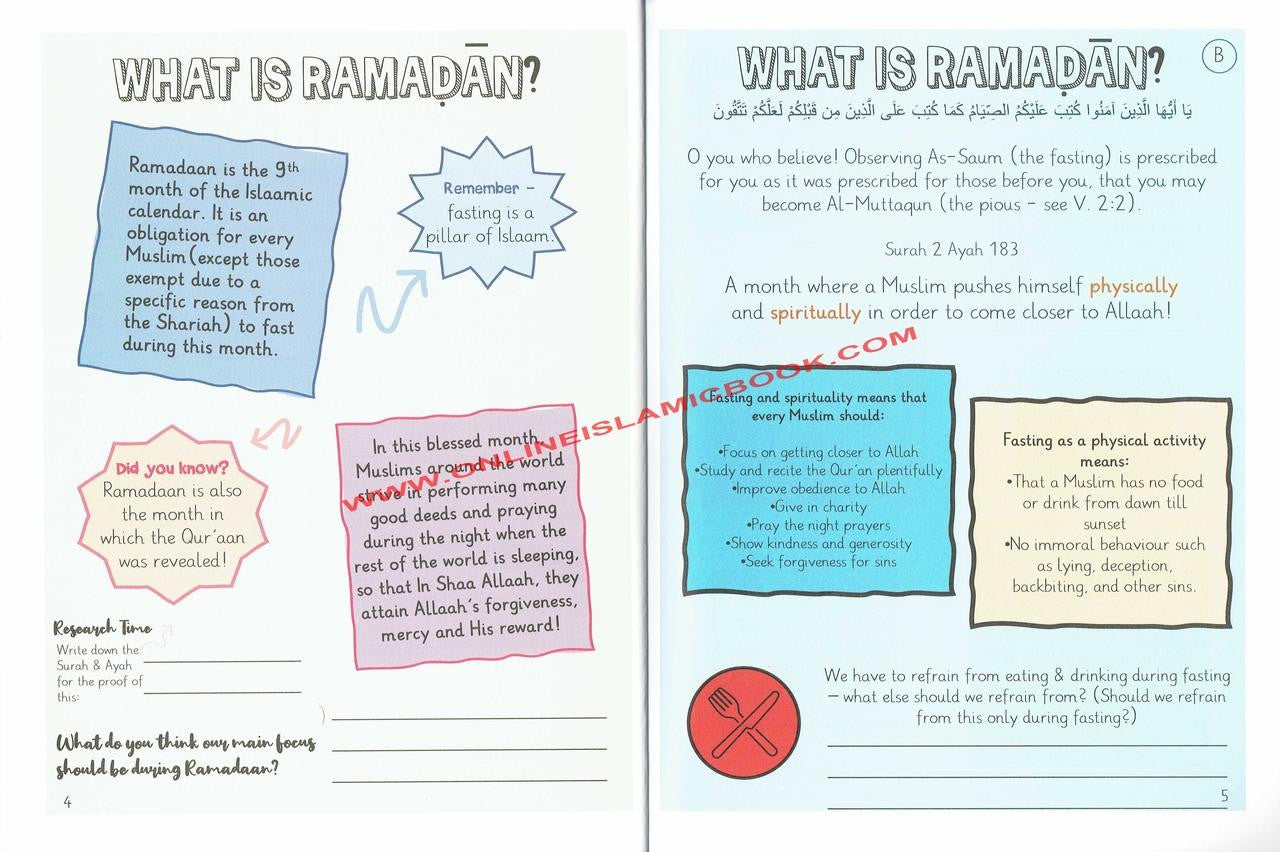 WHAT IS RAMAḌĀN?
Ramadaan is the 9th
month of the Islaamic
calendar. It is an
obligation for every
Muslim(except those
exempt due to a
specific reason from
the Shariah) to fast
during this month.
Remember –
fasting is a
pillar of Islaam.
Did you know?
Ramadaan is also
the month in
which the Qur´aan
was revealed!
In this blessed month,
Muslims around the world
strive in performing many
good deeds and praying
during the night when the
rest of the world is sleeping,
so that In Shaa Allaah, they
attain Allaah´s forgiveness,
mercy and His reward!
Research Time
Write down the
Surah & Ayah
for the proof of
this:
What do you think our main focus
should be during Ramadaan?
4
WHAT IS RAMAḌĀN?
B
يَا أَيُّهَا الَّذِينَ آمَنُوا كُتِبَ عَلَيْكُمُ الصِّيَامُ كَمَا كُتِبَ عَلَى الَّذِينَ مِن قَبْلِكُمْ لَعَلَّكُمْ تَتَّقُونَ
O you who believe! Observing As-Saum (the fasting) is prescribed
for you as it was prescribed for those before you, that you may
become Al-Muttaqun (the pious - see V. 2:2).
Surah 2 Ayah 183
A month where a Muslim pushes himself physically
and spiritually in order to come closer to Allaah!
Fasting and spirituality means that
every Muslim should:
•Focus on getting closer to Allah
•Study and recite the Qur´an plentifully
•Improve obedience to Allah
•Give in charity
•Pray the night prayers
•Show kindness and generosity
•Seek forgiveness for sins
Fasting as a physical activity
means:
•That a Muslim has no food
or drink from dawn till
sunset
•No immoral behaviour such
as lying, deception,
backbiting, and other sins.
We have to refrain from eating & drinking during fasting
– what else should we refrain from? (Should we refrain
from this only during fasting?)
5
WWW.ONLINEISLAMICBOOK.COM